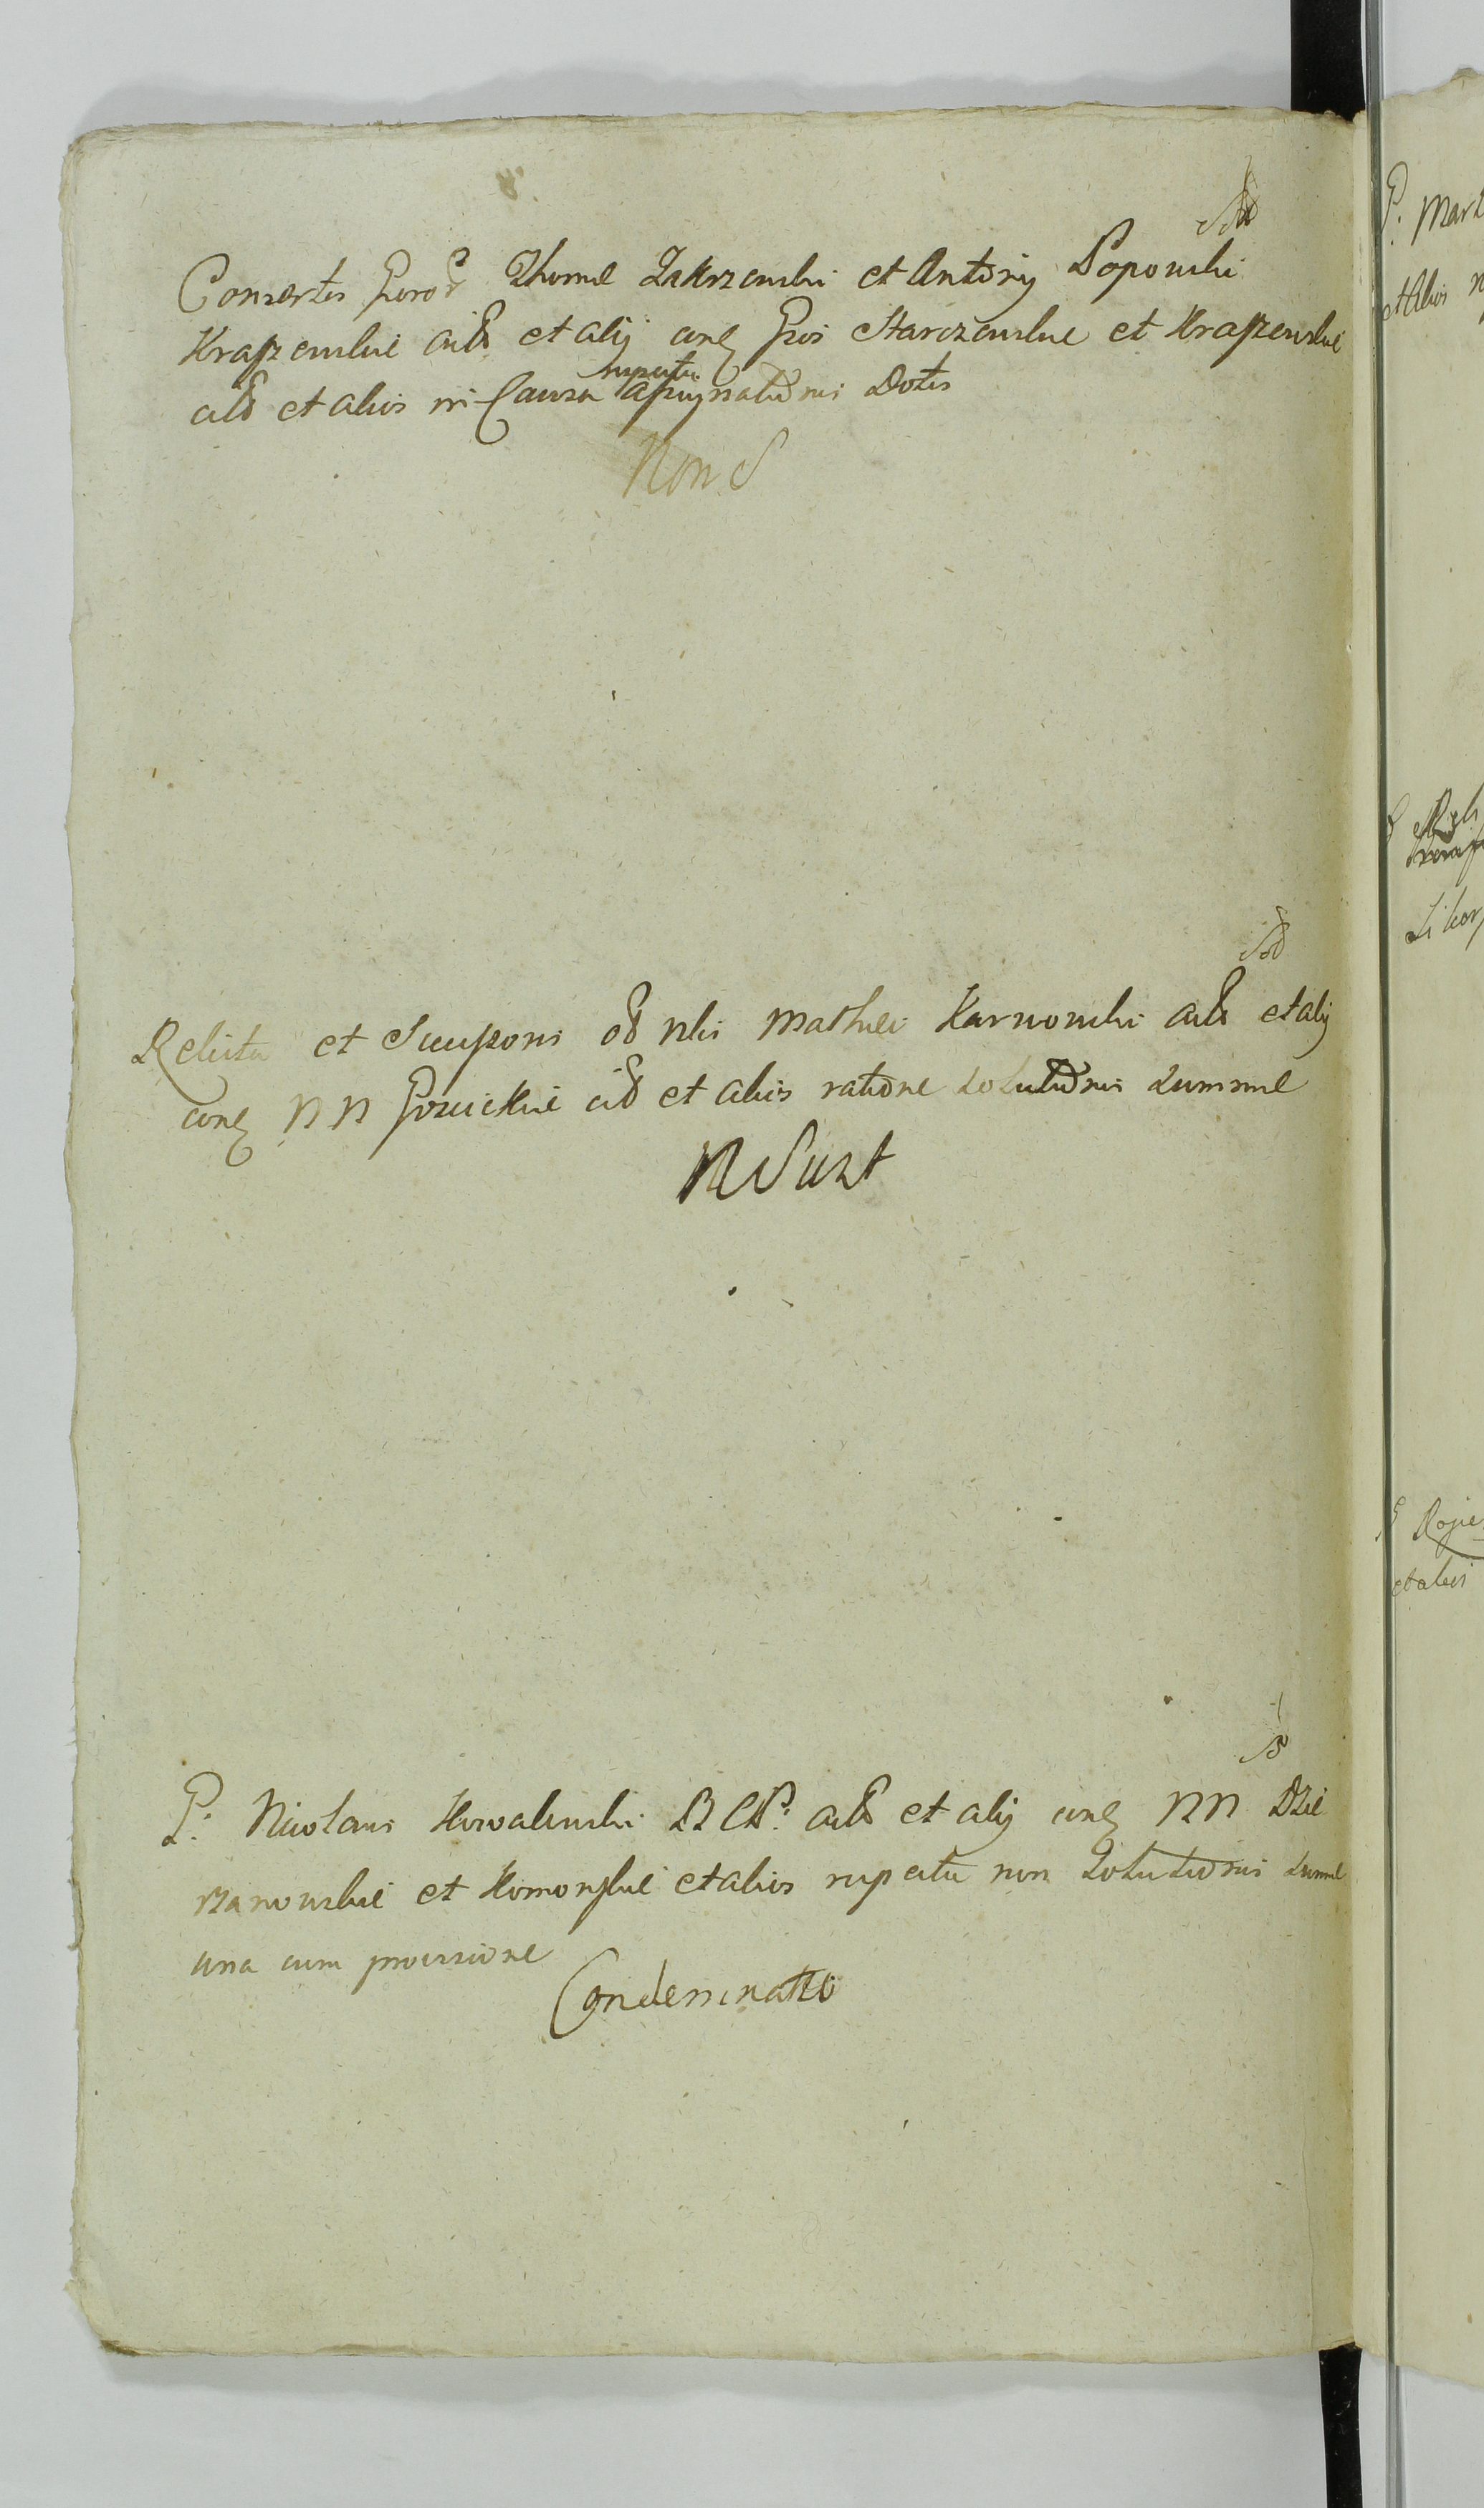 Consortes Gsoro Thomæ Zakrzewski et Antonij Popowski
Kraszewskie act et alij cone Gsos Starczewskie et Kraszewskie
cit et alios in Causa respectu assignationis Dotis
Non S
Relicta et Succesores ol Nlis Mathei Karnowski act et alij
cone NN Gosickie cit et alios ratione solutionis Summæ
N Sunt
G. Nicolaus Kowalewski B C P. act et alij cone NN Dzie
rzanowskie et Komorskie et alios respectu non Solutionis Summæ
una cum provisione
Condemnatio
P. Mart
et alios
Roje
et alios